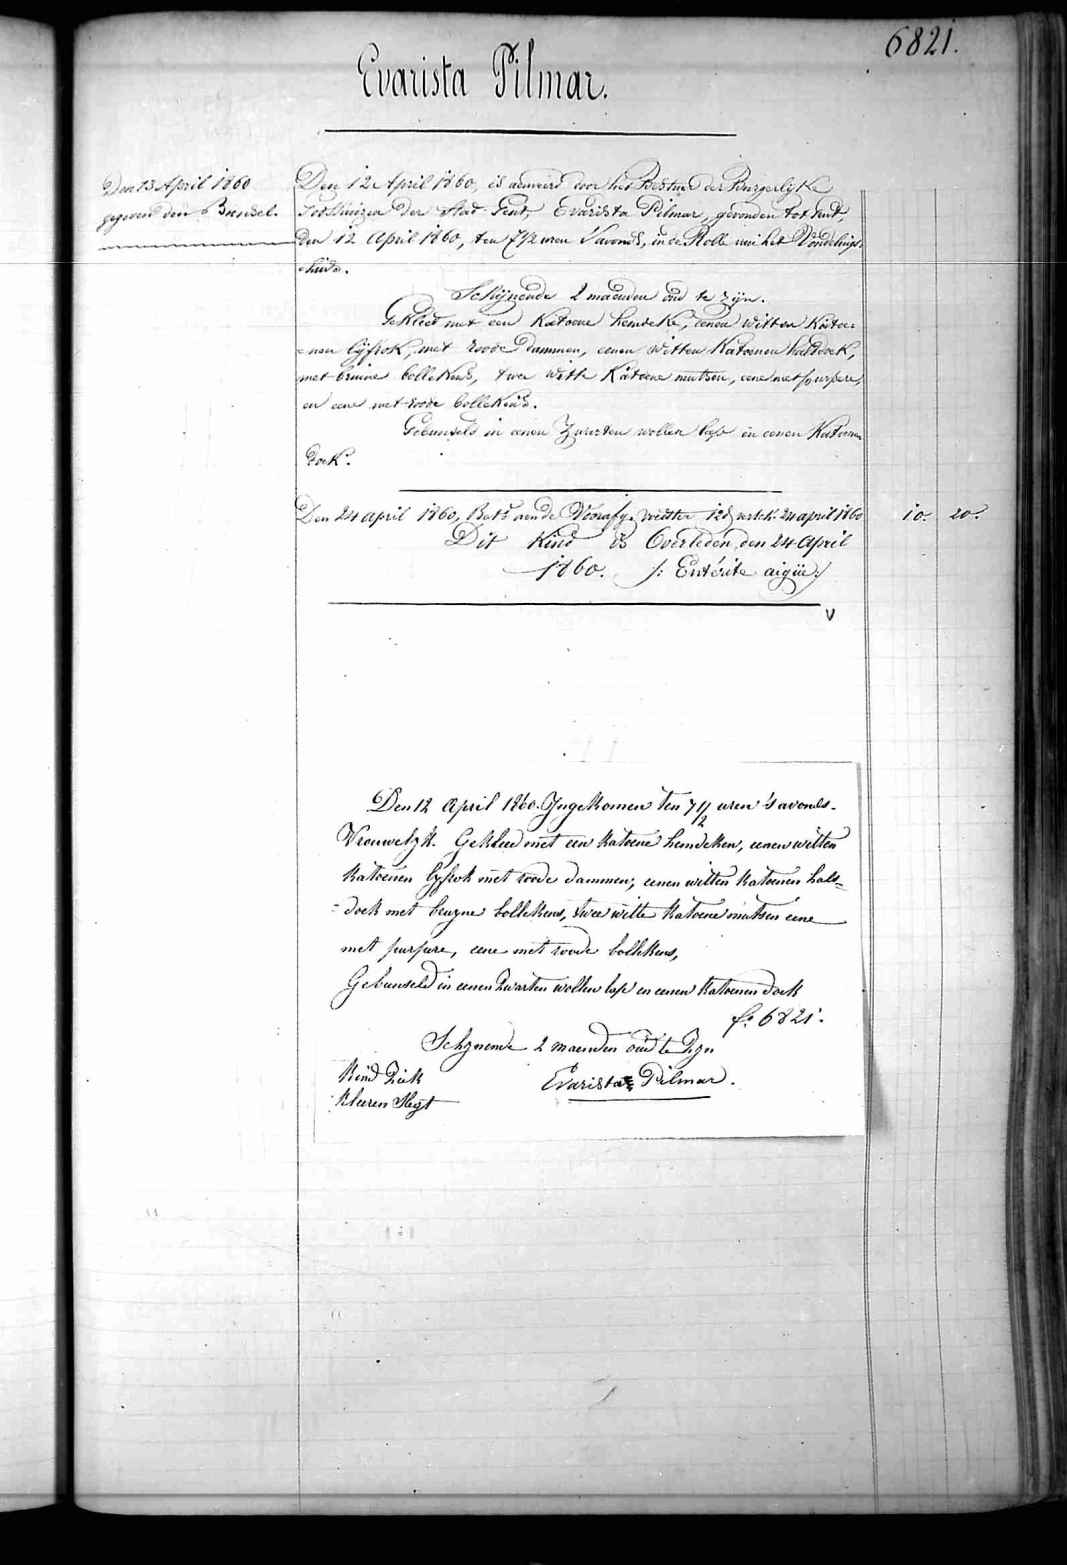 6821.
Evarista Pilmar.
Den 13 April 1860
gegeven den Bundel.
Den 12 April 1860, is aenveerd door het Bestuer der Burgerlyke
Godshuizen der Stad Gent, Evarista Pilmar, gevonden tot Gent,
den 12 April 1860, ten 7 1/2 uren 's avonds, in de Rolle van het Vondelings-
huis.
Schijnende 2 maenden oud te zijn.
Gekleed met een Katoene hemdeke, eenen witten Katoe=
=nen lijfrok, met roode dammen, eenen witten Katoenen halsdoek,
met bruine bollekens, twee witte Katoene mutsen, eene met purpere,
en eene met roode bollekens.
Gebunseld in eenen Zwarten wollen lap en eenen Katoenen
doek.
Den 24 april 1860, Bet.d aen de 12 24 april 1860 10. 20.
Dit Kind is Overleden den 24 April
1860. /: Entérite aigüe :/
V
Den 12 April 1860. Ingekomen ten 7 1/2 uren 's avonds.
Vrouwelyk. Gekleed met een katoene hemdeken, eenen witten
katoenen lyfrok met roode dammen, eenen witten katoenen hals=
=doek met bruyne bollekens, twee witte katoene mutsen eene
met purpere, eene met roode bollekens,
Gebunseld in eenen Zwarten wollen lap en eenen katoenen doek
f.o 6821.
Schynende 2 maenden oud te Zyn
Kind Ziek
Evarista Pilmar.
Kleeren Slegt